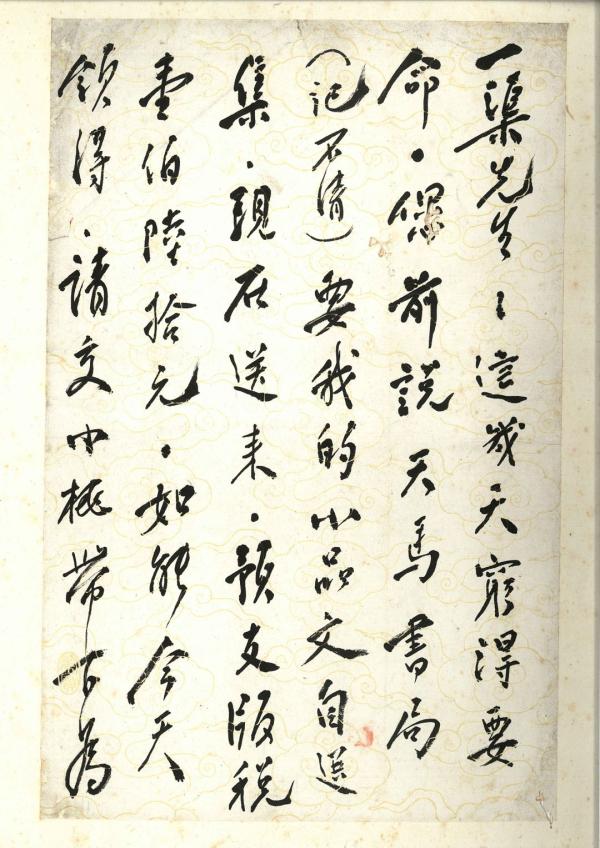 一渠先生：這幾天窮得要
命．你前說天馬書局
（記不清）要我的小品文自選
集．現在送來．預支版稅
壹伯陸拾元．如能今天
領得．請交小桃帶下為